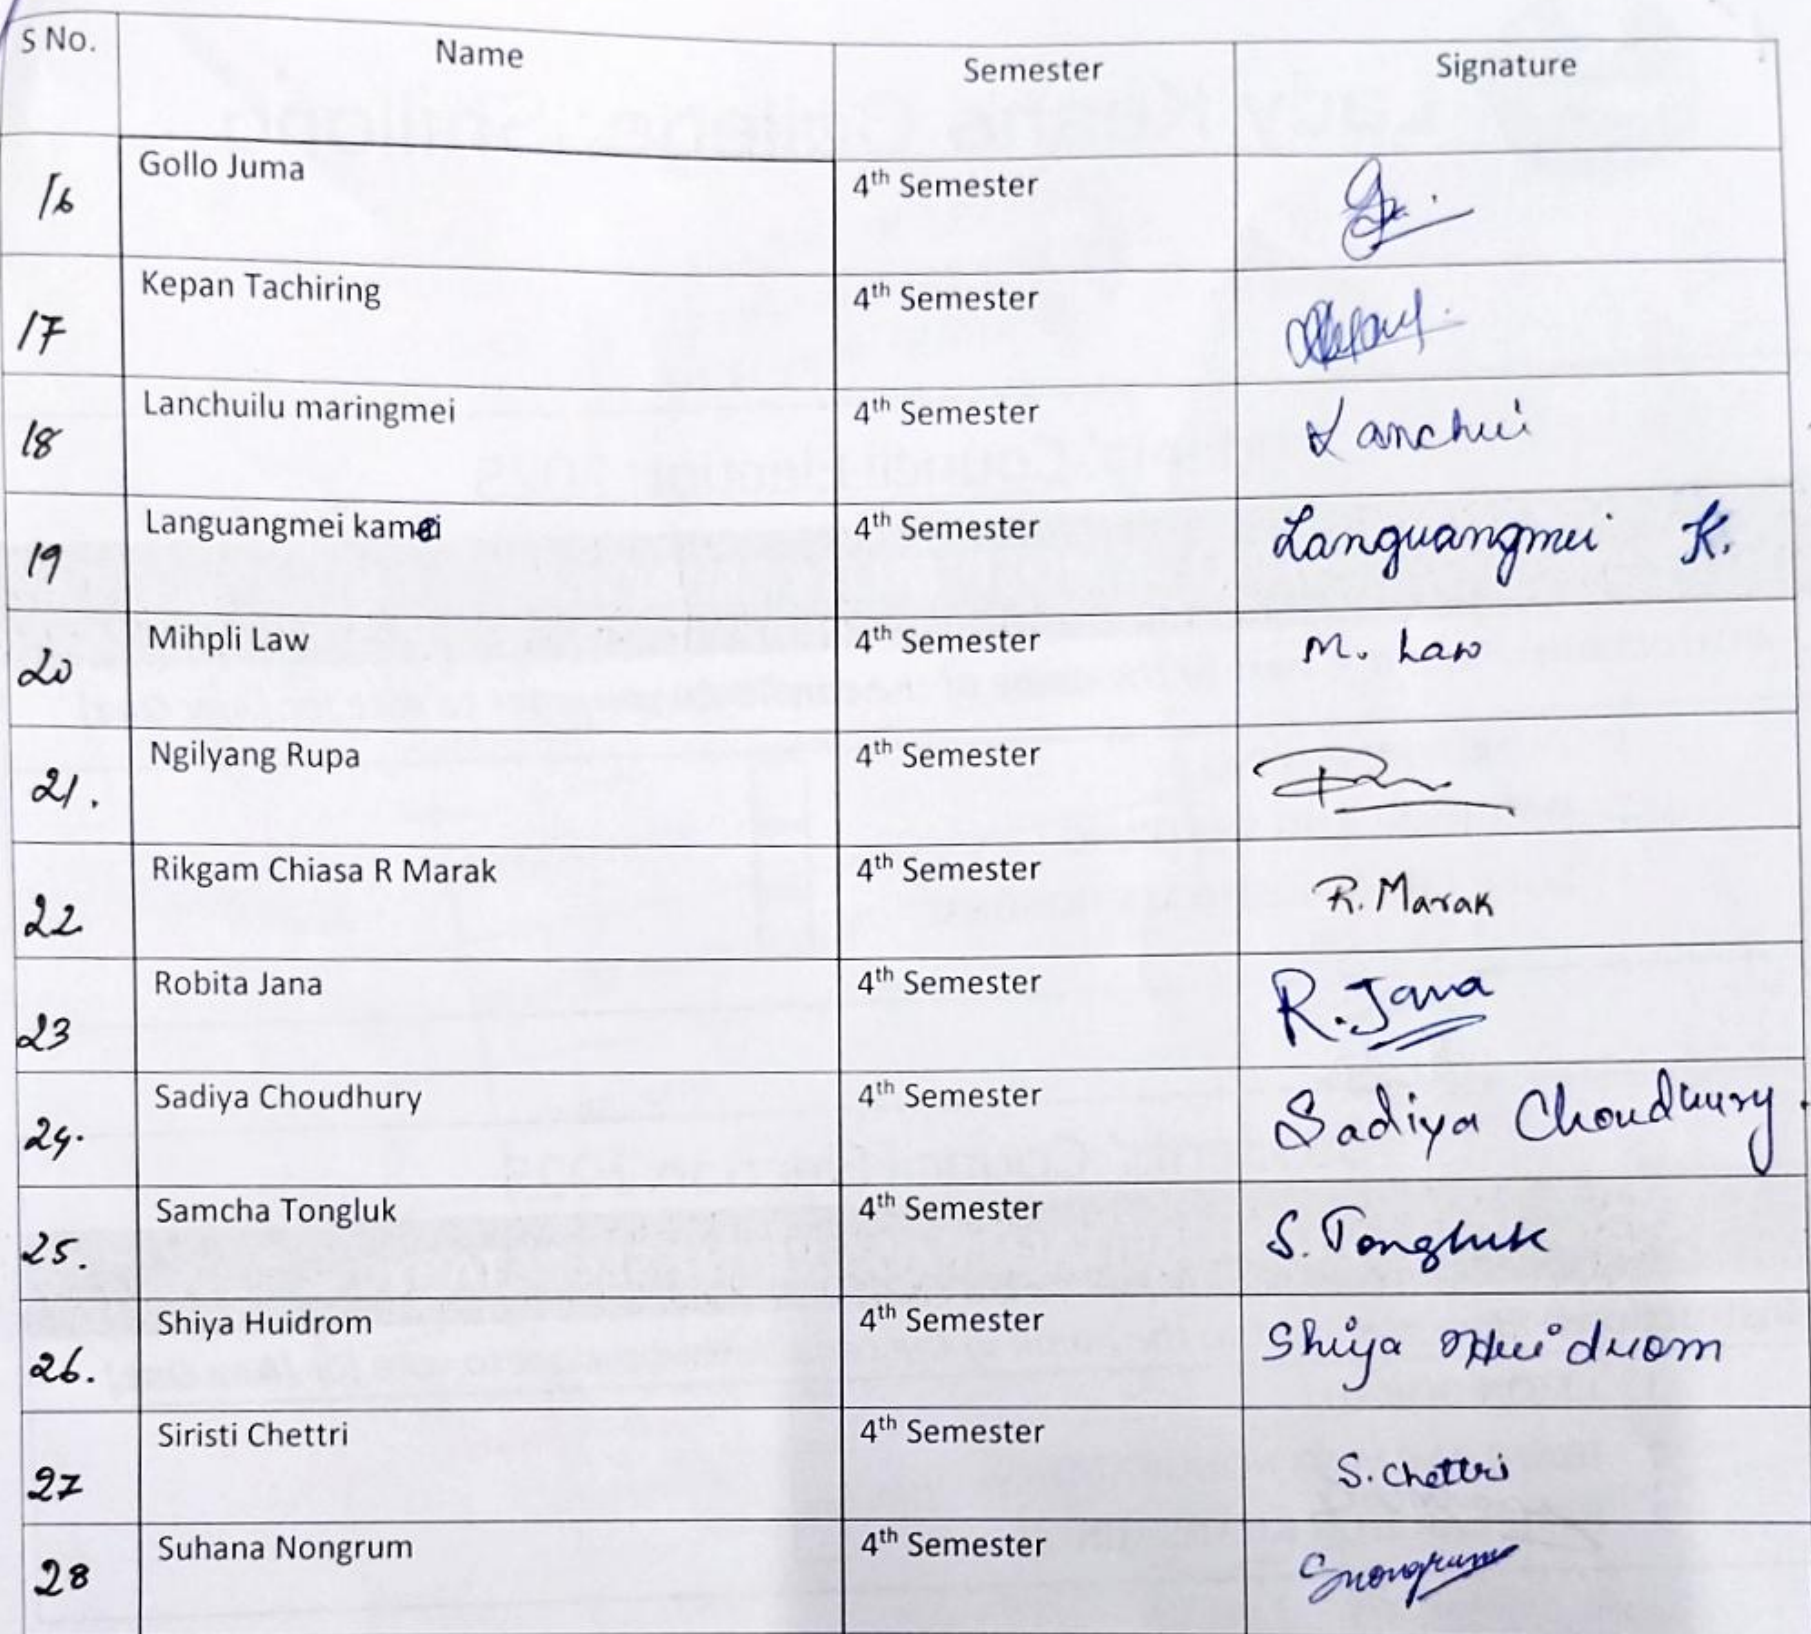 S No. Name Semester Signature
16 Gollo Juma 4th Semester
17 Kepan Tachiring 4th Semester
18 Lanchuilu maringmei 4th Semester Lanchui
19 Languangmei kamei 4th Semester Languangmei K.
20 Mihpli Law 4th Semester M. Law
21. Ngilyang Rupa 4th Semester
22 Rikgam Chiasa R Marak 4th Semester R. Marak
23 Robita Jana 4th Semester R. Jana
24. Sadiya Choudhury 4th Semester Sadiya Choudhury
25. Samcha Tongluk 4th Semester S. Tongluk
26. Shiya Huidrom 4th Semester Shiya Huidrom
27 Siristi Chettri 4th Semester S. Chettri
28 Suhana Nongrum 4th Semester Snongrum